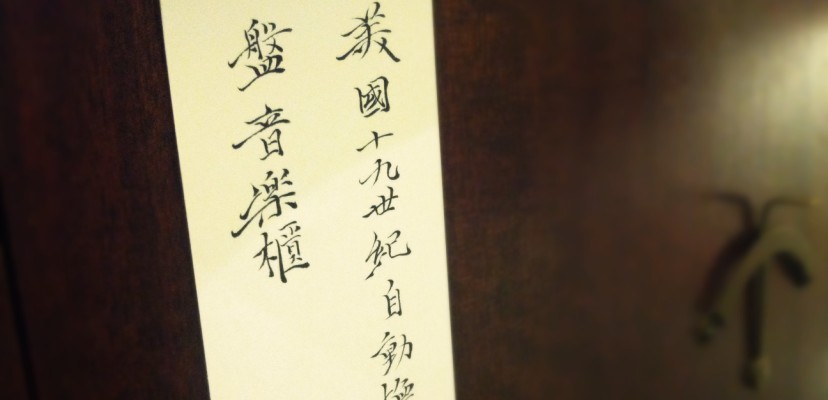 美國十九世紀自動
盤音樂櫃